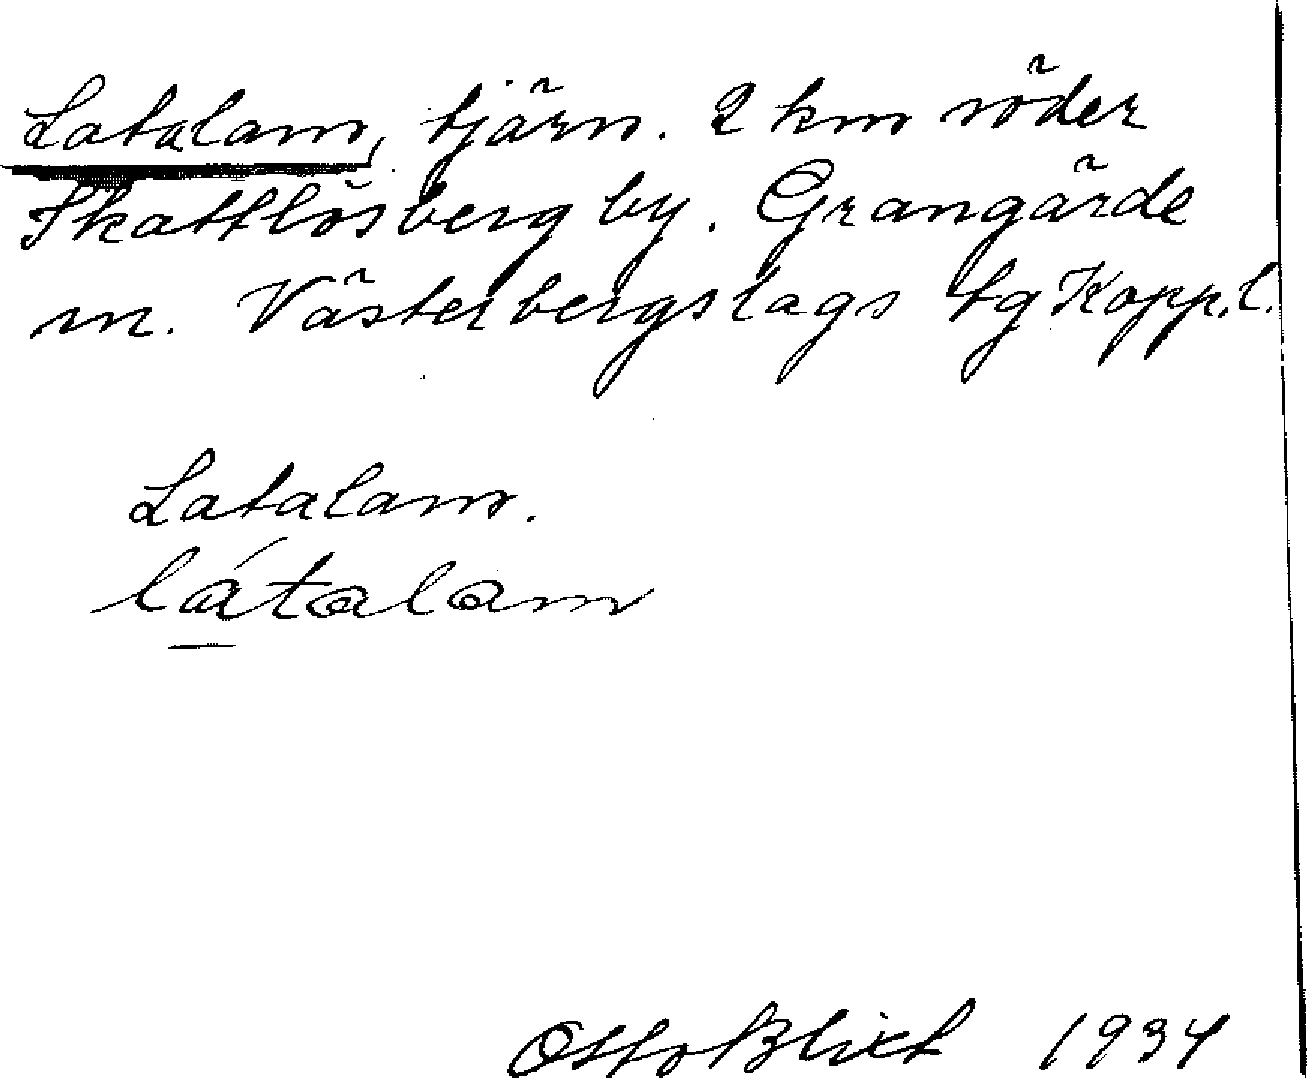 Latalam, tjärn. 2 km söder
Skattlösberg by. Grangärde
sn. Västerbergslags tg Kopp.l.
Latalam.
látalam
Otto Blixt 1934